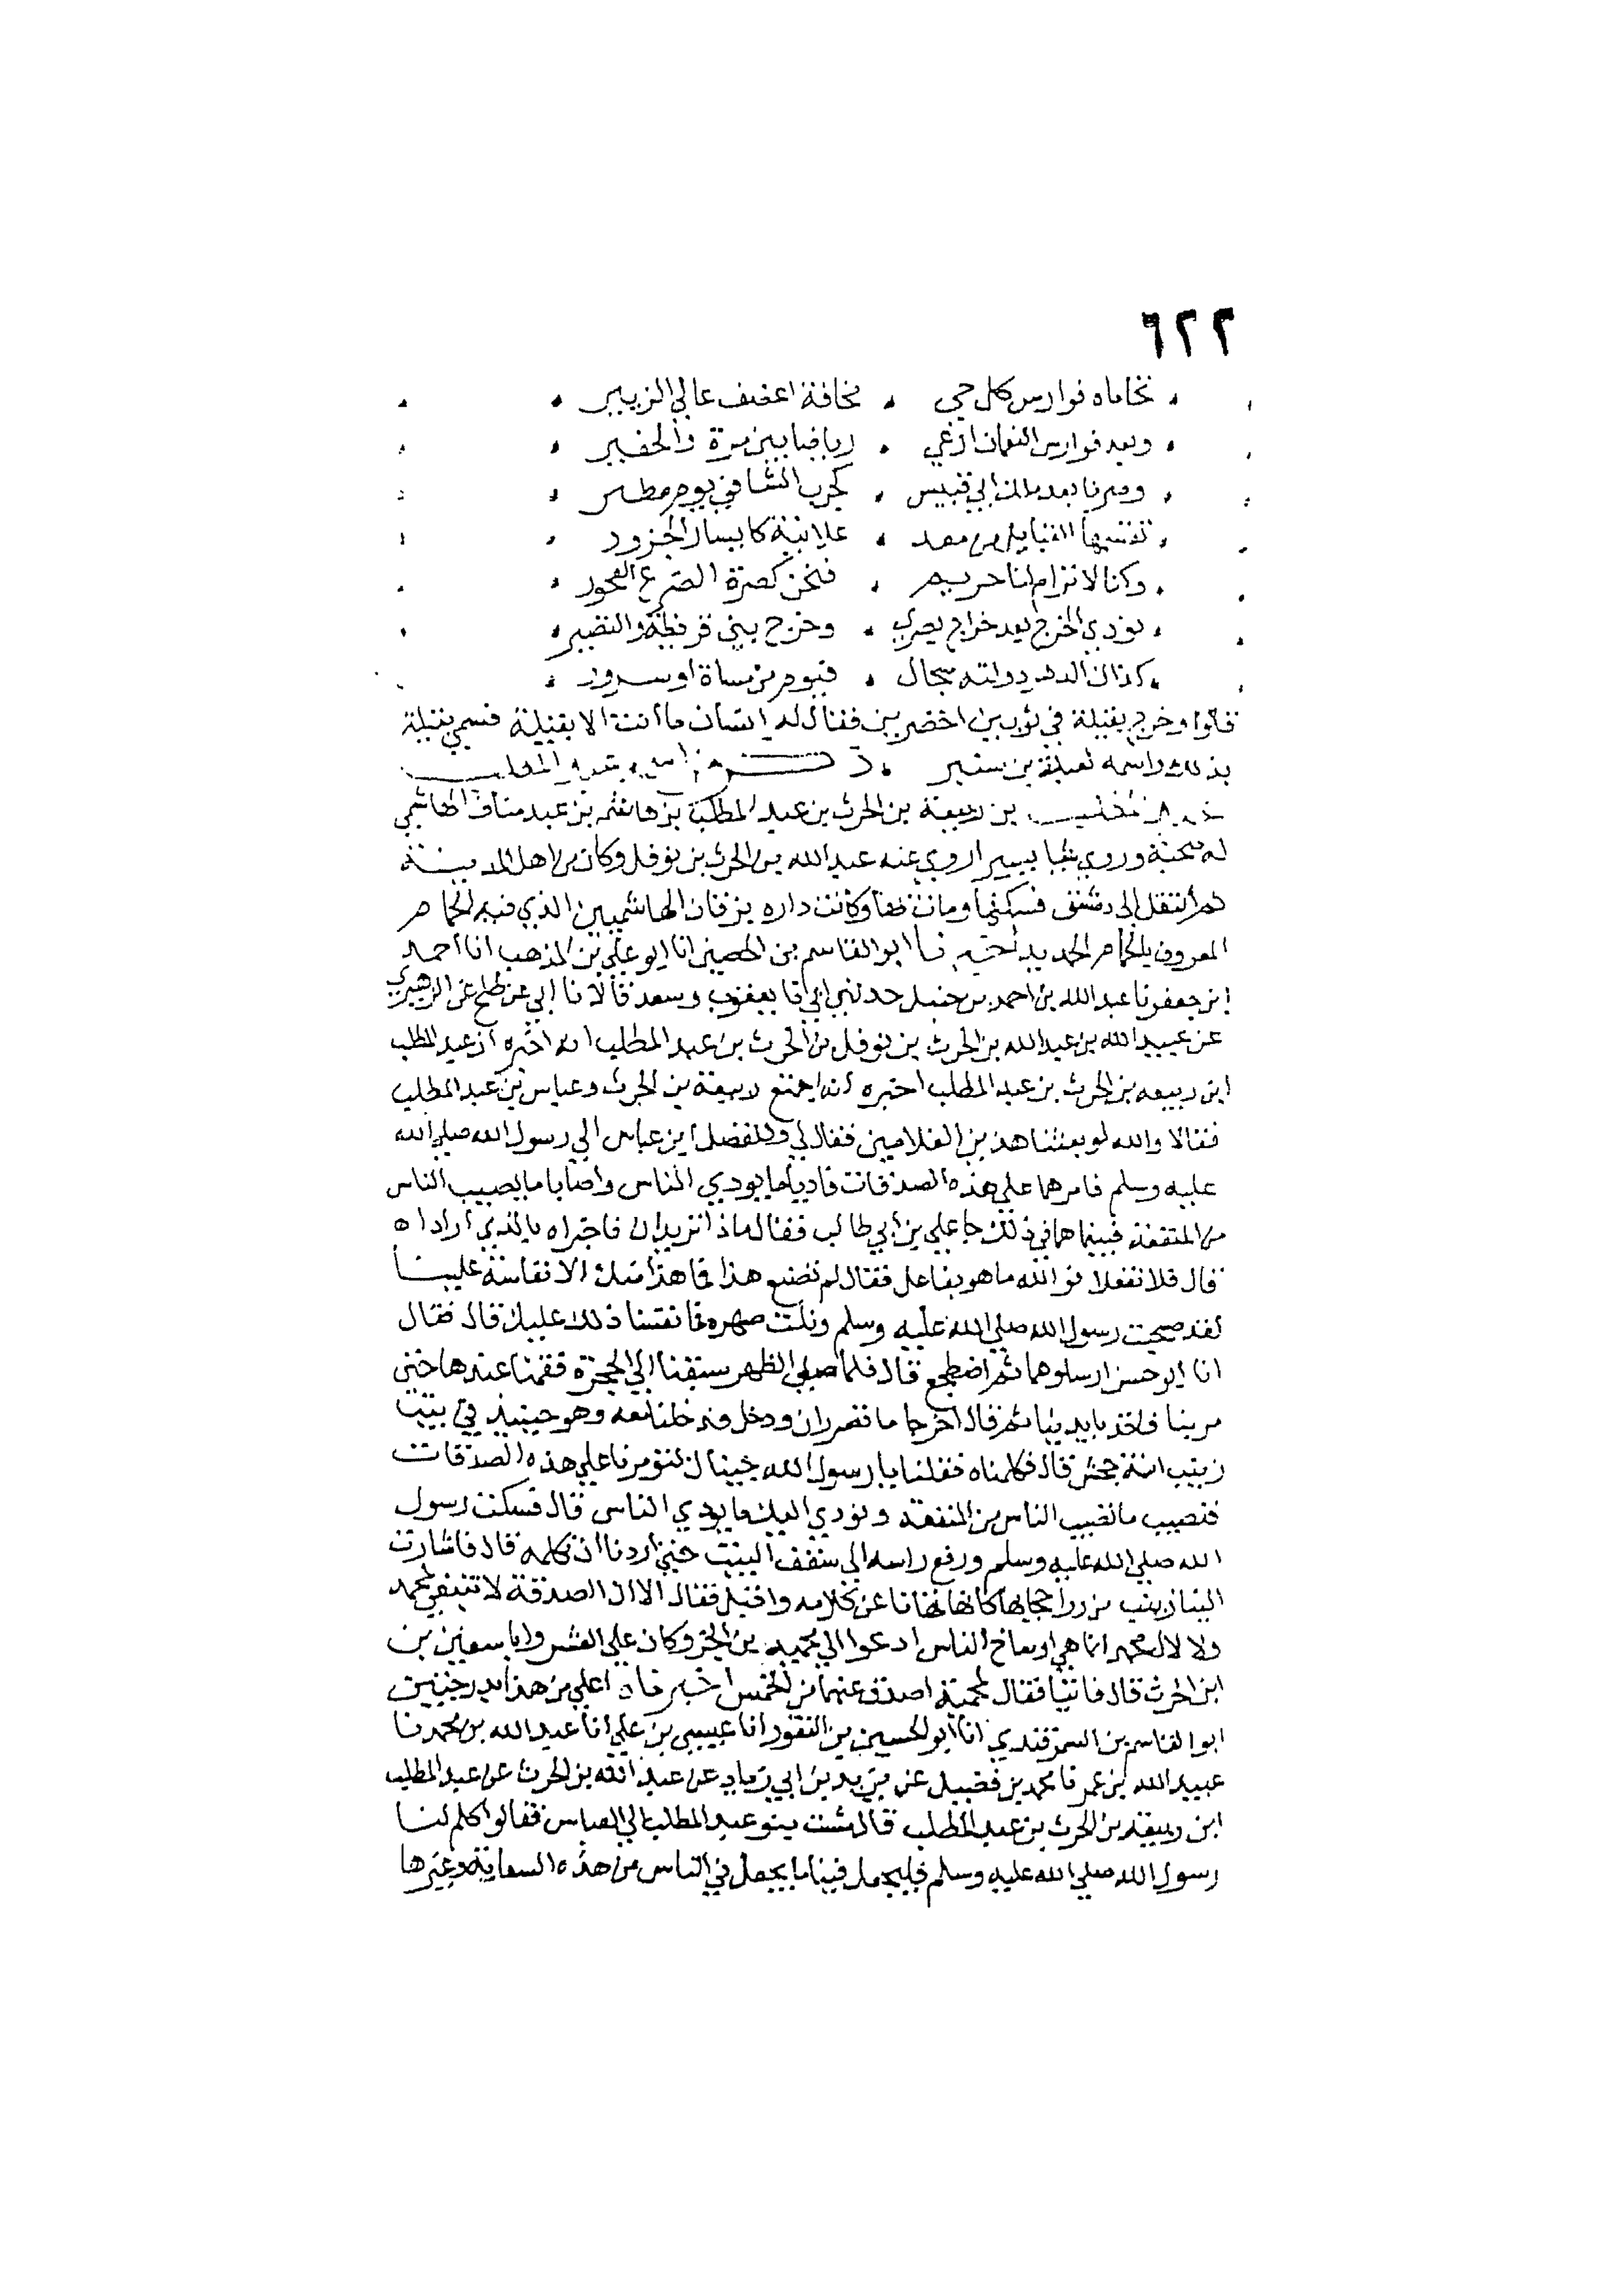 ٦٢٢
تحاماه فوارس كل حي ، مخافة اغضف عالي الزبير ،
وبعد فوارس النعمان ارعي ، رياضا بين مرة والحفير ،
وصرنا بعد هلك ابي قبيس ، كجرب الشا في يوم مطير ،
تقسمها القبايل من معد ، علانية كايسار الجزور ،
وكنا لا نرام لنا حريم ، فنحن كضرة الضرع الفخور ،
نودي الخرج بعد خراج بصري ، وخرج بني قريظة والنضير ،
كذاك الدهر دولته سجال ، فيوم من مساة او سرور ،
قالوا وخرج بقيلة في ثوبين اخضرين فقال له انسان ما انت الا بقيلة فسمي بقيلة
بذلك واسمه ثعلبة بن سنير ، اسمه عبد المطلب
بن ربيعة بن الحرث بن عبد المطلب بن هاشم بن عبد مناف الهاشمي
له صحبة وروي شيا يسيرا روي عنه عبد الله بن الحرث بن نوفل وكان من اهل المدينة
ثم انتقل الي دمشق فسكنها ومات بها وكانت داره بزقاق الهاشميين الذي فيه الحمام
المعروف بالحمام الجديد اخبرنا ابو القاسم بن الحصين انا ابو علي بن المذهب انا احمد
ابن جعفر نا عبد الله بن احمد بن حنبل حدثني ابي نا يعقوب وسعد قالا نا ابي عن صالح عن الزهري
عن عبيد الله بن عبد الله بن الحرث بن نوفل بن الحرث بن عبد المطلب انه اخبره ان عبد المطلب
ابن ربيعه بن الحرث بن عبد المطلب اخبره انه اجتمع ربيعة بن الحرث وعباس بن عبد المطلب
فقالا والله لو بعثنا هذين الغلامين فقال لي وللفضل ابن عباس الي رسول الله صلي الله
عليه وسلم فامرهما علي هذه الصدقات فاديا ما يودي الناس واصابا ما يصيب الناس
من المنفعة فبينما هما في ذلك جا علي بن ابي طالب فقال ماذا تريدان فاخبراه بالذي ارادا ه
قال فلا تفعلا فو الله ما هو بفاعل فقال لم تصنع هذا فما هذا منك الا نفاسة علينا
لقد صحبت رسول الله صلي الله عليه وسلم ونلت صهره فما نفسنا ذلك عليك قال فقال
انا ابو حسن ارسلوهما ثم اضطجع قال فلما صلي الظهر سبقناه الي الحجرة فقمنا عندها حتي
مر بنا فاخذ بايدينا ثم قال اخرجا ما تصرران ودخل فدخلنا معه وهو حينيذ في بيت
زينب ابنة جحش قال فكلمناه فقلنا يا رسول الله جيناك لتومرنا علي هذه الصدقات
فنصيب ما يصيب الناس من المنفعة ونودي اليك ما يودي الناس قال فسكت رسول
الله صلي الله عليه وسلم ورفع راسه الي سقف البيت حتي اردنا ان نكلمه قال فاشارت
الينا زينب من ورا حجابها كانها تنهانا عن كلامه واقبل فقال الا ان الصدقة لا تنبغي لمحمد
ولا لال محمد انما هي اوساخ الناس ادعوا الي محميه بن الجز وكان علي العشر وابا سفين بن
ابن الحرث قال فاتيا فقال لمحمية اصدق عنهما من الخمس اعلي من هذا بدرجتين
ابو القاسم بن السمرقندي انا ابو الحسين بن النقور انا عيسي بن علي انا عبد الله بن محمد نا
عبيد الله بن عمر نا محمد بن فضيل عن يزيد بن ابي زياد عن عبد الله بن الحرث عن عبد المطلب
ابن ربيعة بن الحرث بن عبد المطلب قال مشت بنو عبد المطلب الي العباس فقالوا كلم لنا
رسول الله صلي الله عليه وسلم فليجعل فينا ما يجعل في الناس من هذه السعاية وغيرها